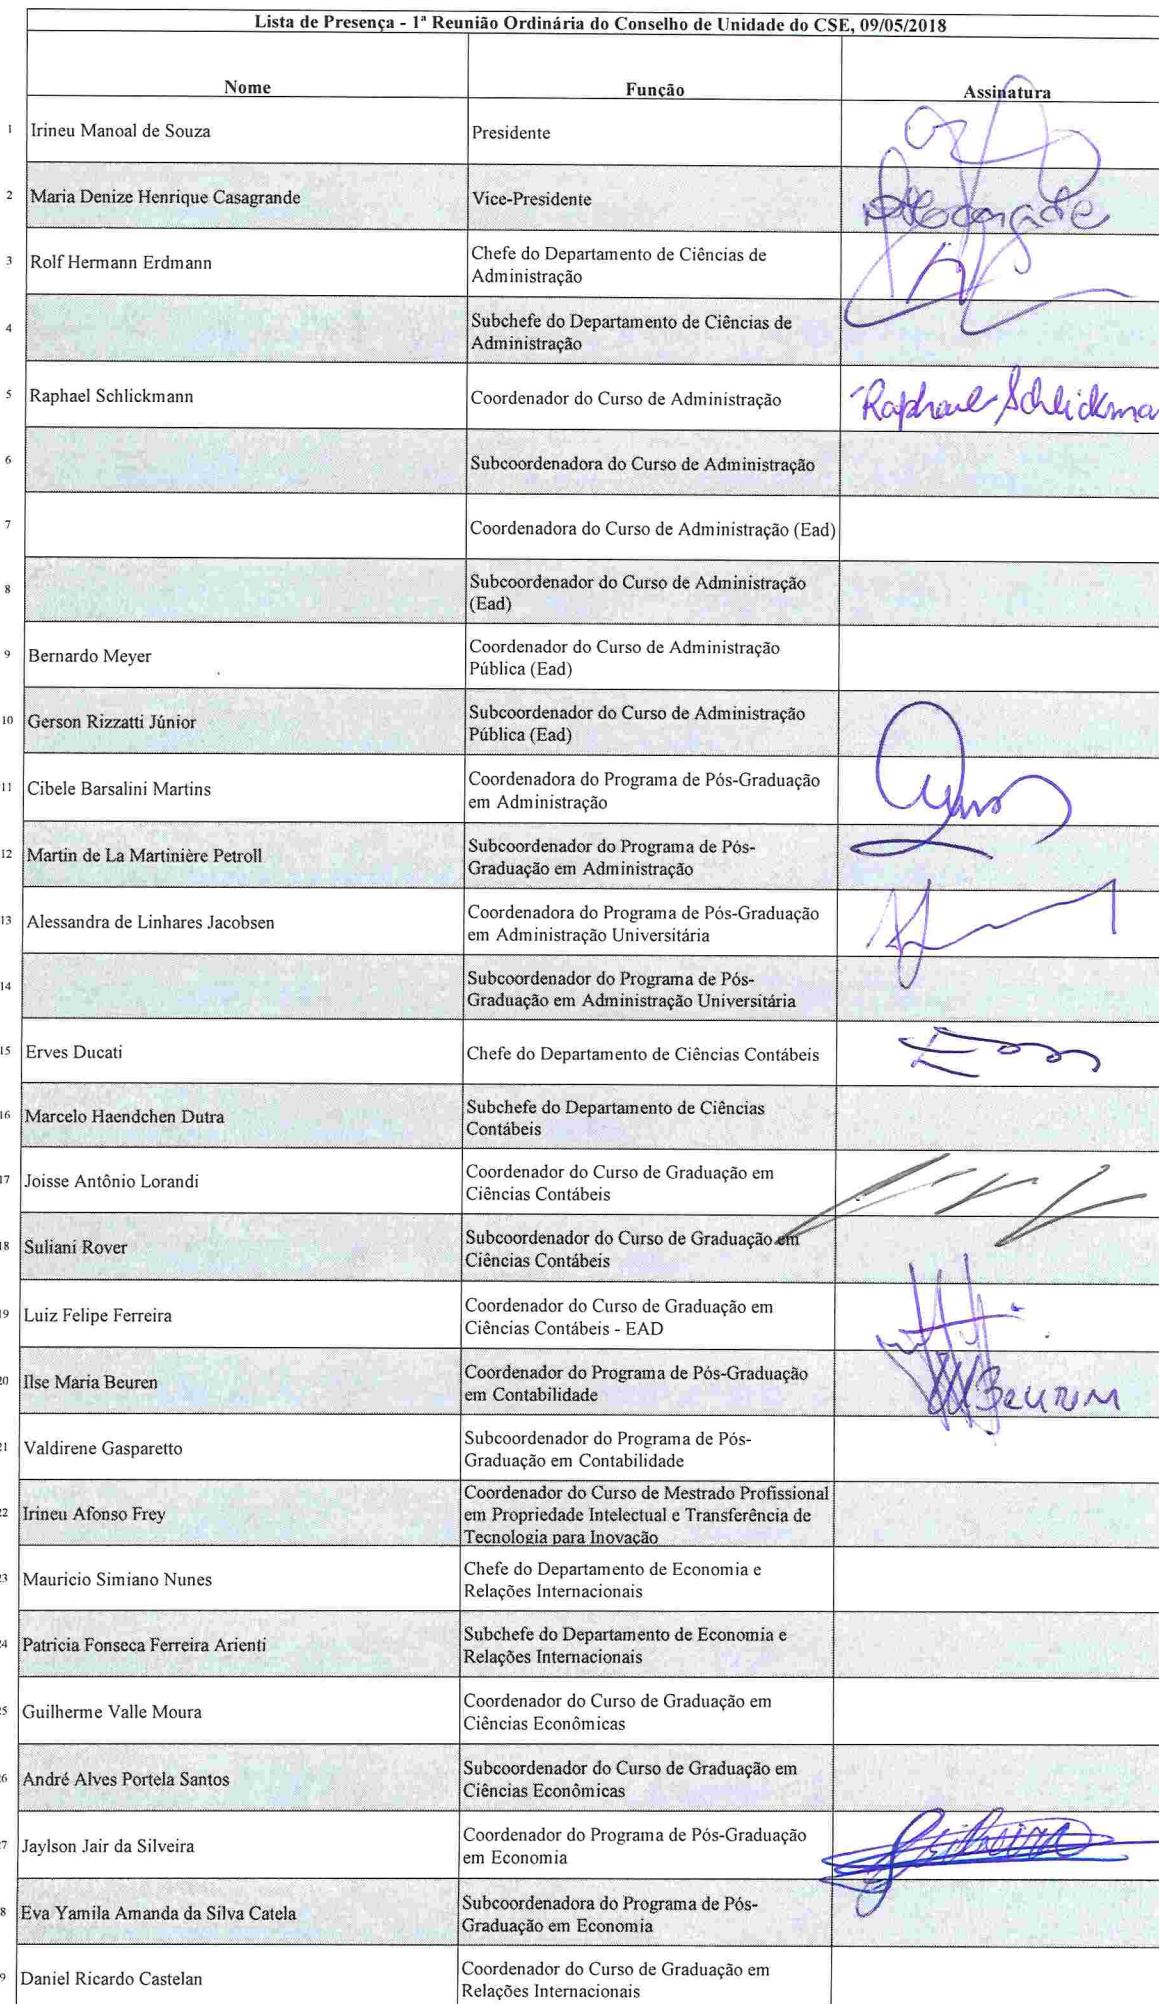 Lista de Presença - 1ª Reunião Ordinária do Conselho de Unidade do CSE, 09/05/2018
Nome Função Assinatura
1 Irineu Manoal de Souza Presidente
2 Maria Denize Henrique Casagrande Vice-Presidente
3 Rolf Hermann Erdmann Chefe do Departamento de Ciências de
Administração
4 Subchefe do Departamento de Ciências de
Administração
5 Raphael Schlickmann Coordenador do Curso de Administração Raphael Schlickman
6 Subcoordenadora do Curso de Administração
7 Coordenadora do Curso de Administração (Ead)
8 Subcoordenador do Curso de Administração
(Ead)
9 Bernardo Meyer Coordenador do Curso de Administração
Pública (Ead)
10 Gerson Rizzatti Júnior Subcoordenador do Curso de Administração
Pública (Ead)
11 Cibele Barsalini Martins Coordenadora do Programa de Pós-Graduação
em Administração
12 Martin de La Martinière Petroll Subcoordenador do Programa de Pós-
Graduação em Administração
13 Alessandra de Linhares Jacobsen Coordenadora do Programa de Pós-Graduação
em Administração Universitária
14 Subcoordenador do Programa de Pós-
Graduação em Administração Universitária
15 Erves Ducati Chefe do Departamento de Ciências Contábeis
16 Marcelo Haendchen Dutra Subchefe do Departamento de Ciências
Contábeis
17 Joisse Antônio Lorandi Coordenador do Curso de Graduação em
Ciências Contábeis
18 Suliani Rover Subcoordenador do Curso de Graduação em
Ciências Contábeis
19 Luiz Felipe Ferreira Coordenador do Curso de Graduação em
Ciências Contábeis - EAD
20 Ilse Maria Beuren Coordenador do Programa de Pós-Graduação
em Contabilidade Beuren
21 Valdirene Gasparetto Subcoordenador do Programa de Pós-
Graduação em Contabilidade
22 Irineu Afonso Frey Coordenador do Curso de Mestrado Profissional
em Propriedade Intelectual e Transferência de
Tecnologia para Inovação
23 Mauricio Simiano Nunes Chefe do Departamento de Economia e
Relações Internacionais
24 Patricia Fonseca Ferreira Arienti Subchefe do Departamento de Economia e
Relações Internacionais
25 Guilherme Valle Moura Coordenador do Curso de Graduação em
Ciências Econômicas
26 André Alves Portela Santos Subcoordenador do Curso de Graduação em
Ciências Econômicas
27 Jaylson Jair da Silveira Coordenador do Programa de Pós-Graduação
em Economia
8 Eva Yamila Amanda da Silva Catela Subcoordenadora do Programa de Pós-
Graduação em Economia
9 Daniel Ricardo Castelan Coordenador do Curso de Graduação em
Relações Internacionais